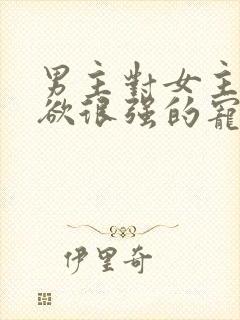 男主對女主
欲很强的寵
伊里奇